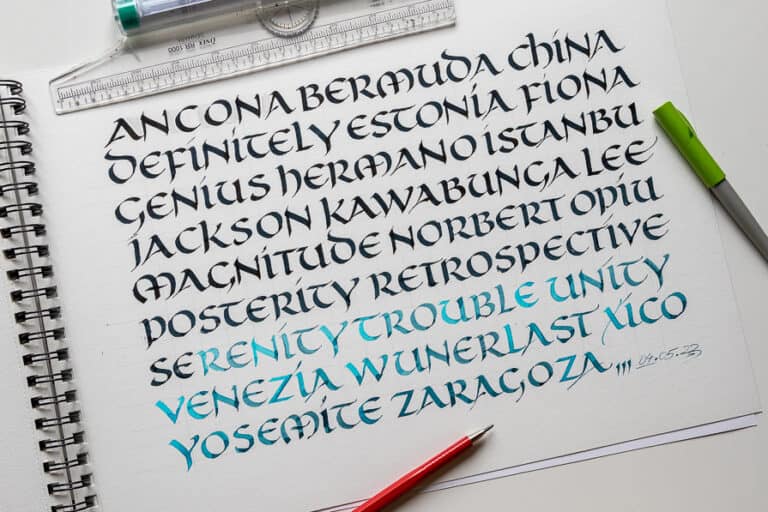 ANCONA BERMUDA CHINA
DEFINITELY ESTONIA FIONA
GENIUS HERMANO ISTANBU
JACKSON KAWABUNGA LEE
MAGNITUDE NORBERT OPIU
POSTERITY RETROSPECTIVE
SERENITY TROUBLE UNITY
VENEZIA WUNERLAST XICO
YOSEMITE ZARAGOZA,,, 04.05.23